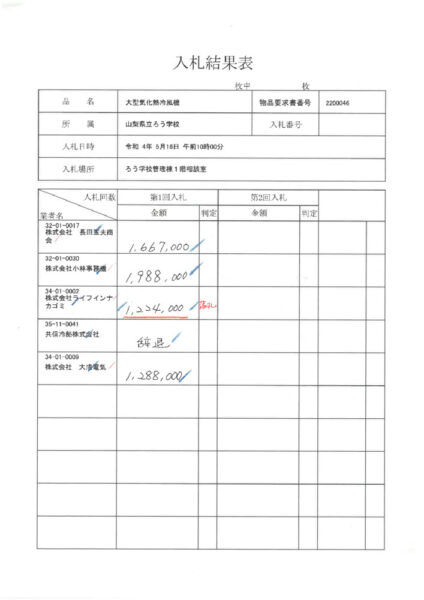 入札結果表
枚中 枚
品名 大型気化熱冷風機 物品要求書番号 2200046
所属 山梨県立ろう学校 入札番号
入札日時 令和 4年 5月16日 午前10時00分
入札場所 ろう学校管理棟1階相談室
入札回数 第1回入札 第2回入札
業者名 金額 判定 金額 判定
32-01-0017
株式会社 長田
会 1,667,000
32-01-0030
株式会社小林事務機 1,988,000
34-01-0002
株式会社ライフインナ
カゴミ 1,224,000 落札
35-11-0041
共信冷熱株式会社 辞退
34-01-0009
株式会社 電気 1,288,000